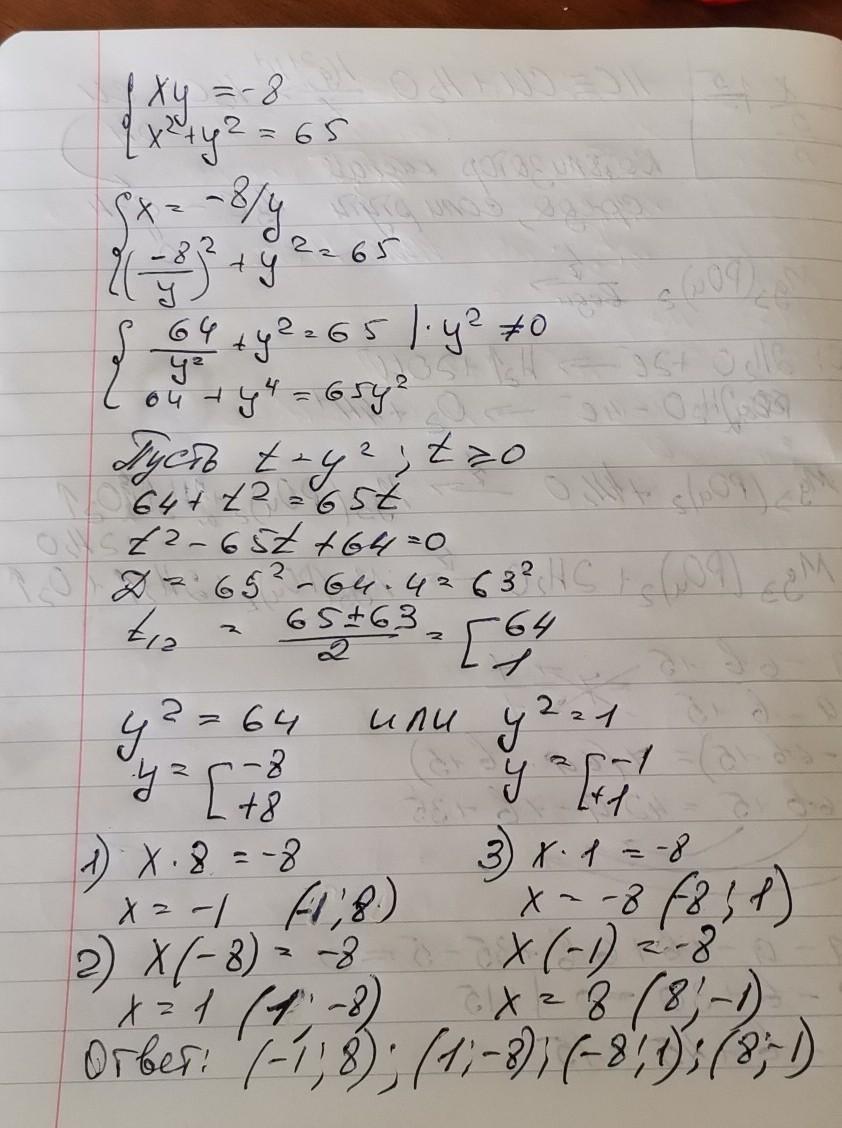 { xy = -8
{ x² + y² = 65
{ x = -8/y
{ (-8/y)² + y² = 65
{ 64/y² + y² = 65 | · y² ≠ 0
{ 64 + y⁴ = 65y²
Пусть t = y² ; t ⩾ 0
64 + t² = 65t
t² - 65t + 64 = 0
D = 65² - 64 · 4 = 63²
t₁₂ = (65 ± 63)/2 = [ 64
1
y² = 64 или y² = 1
y = [ -8 y = [ -1
+8 +1
1) x · 8 = -8 3) x · 1 = -8
x = -1 (-1; 8) x = -8 (-8; 1)
2) x(-8) = -8 x(-1) = -8
x = 1 (1; -8) x = 8 (8; -1)
Ответ: (-1; 8); (1; -8); (-8; 1); (8; -1)